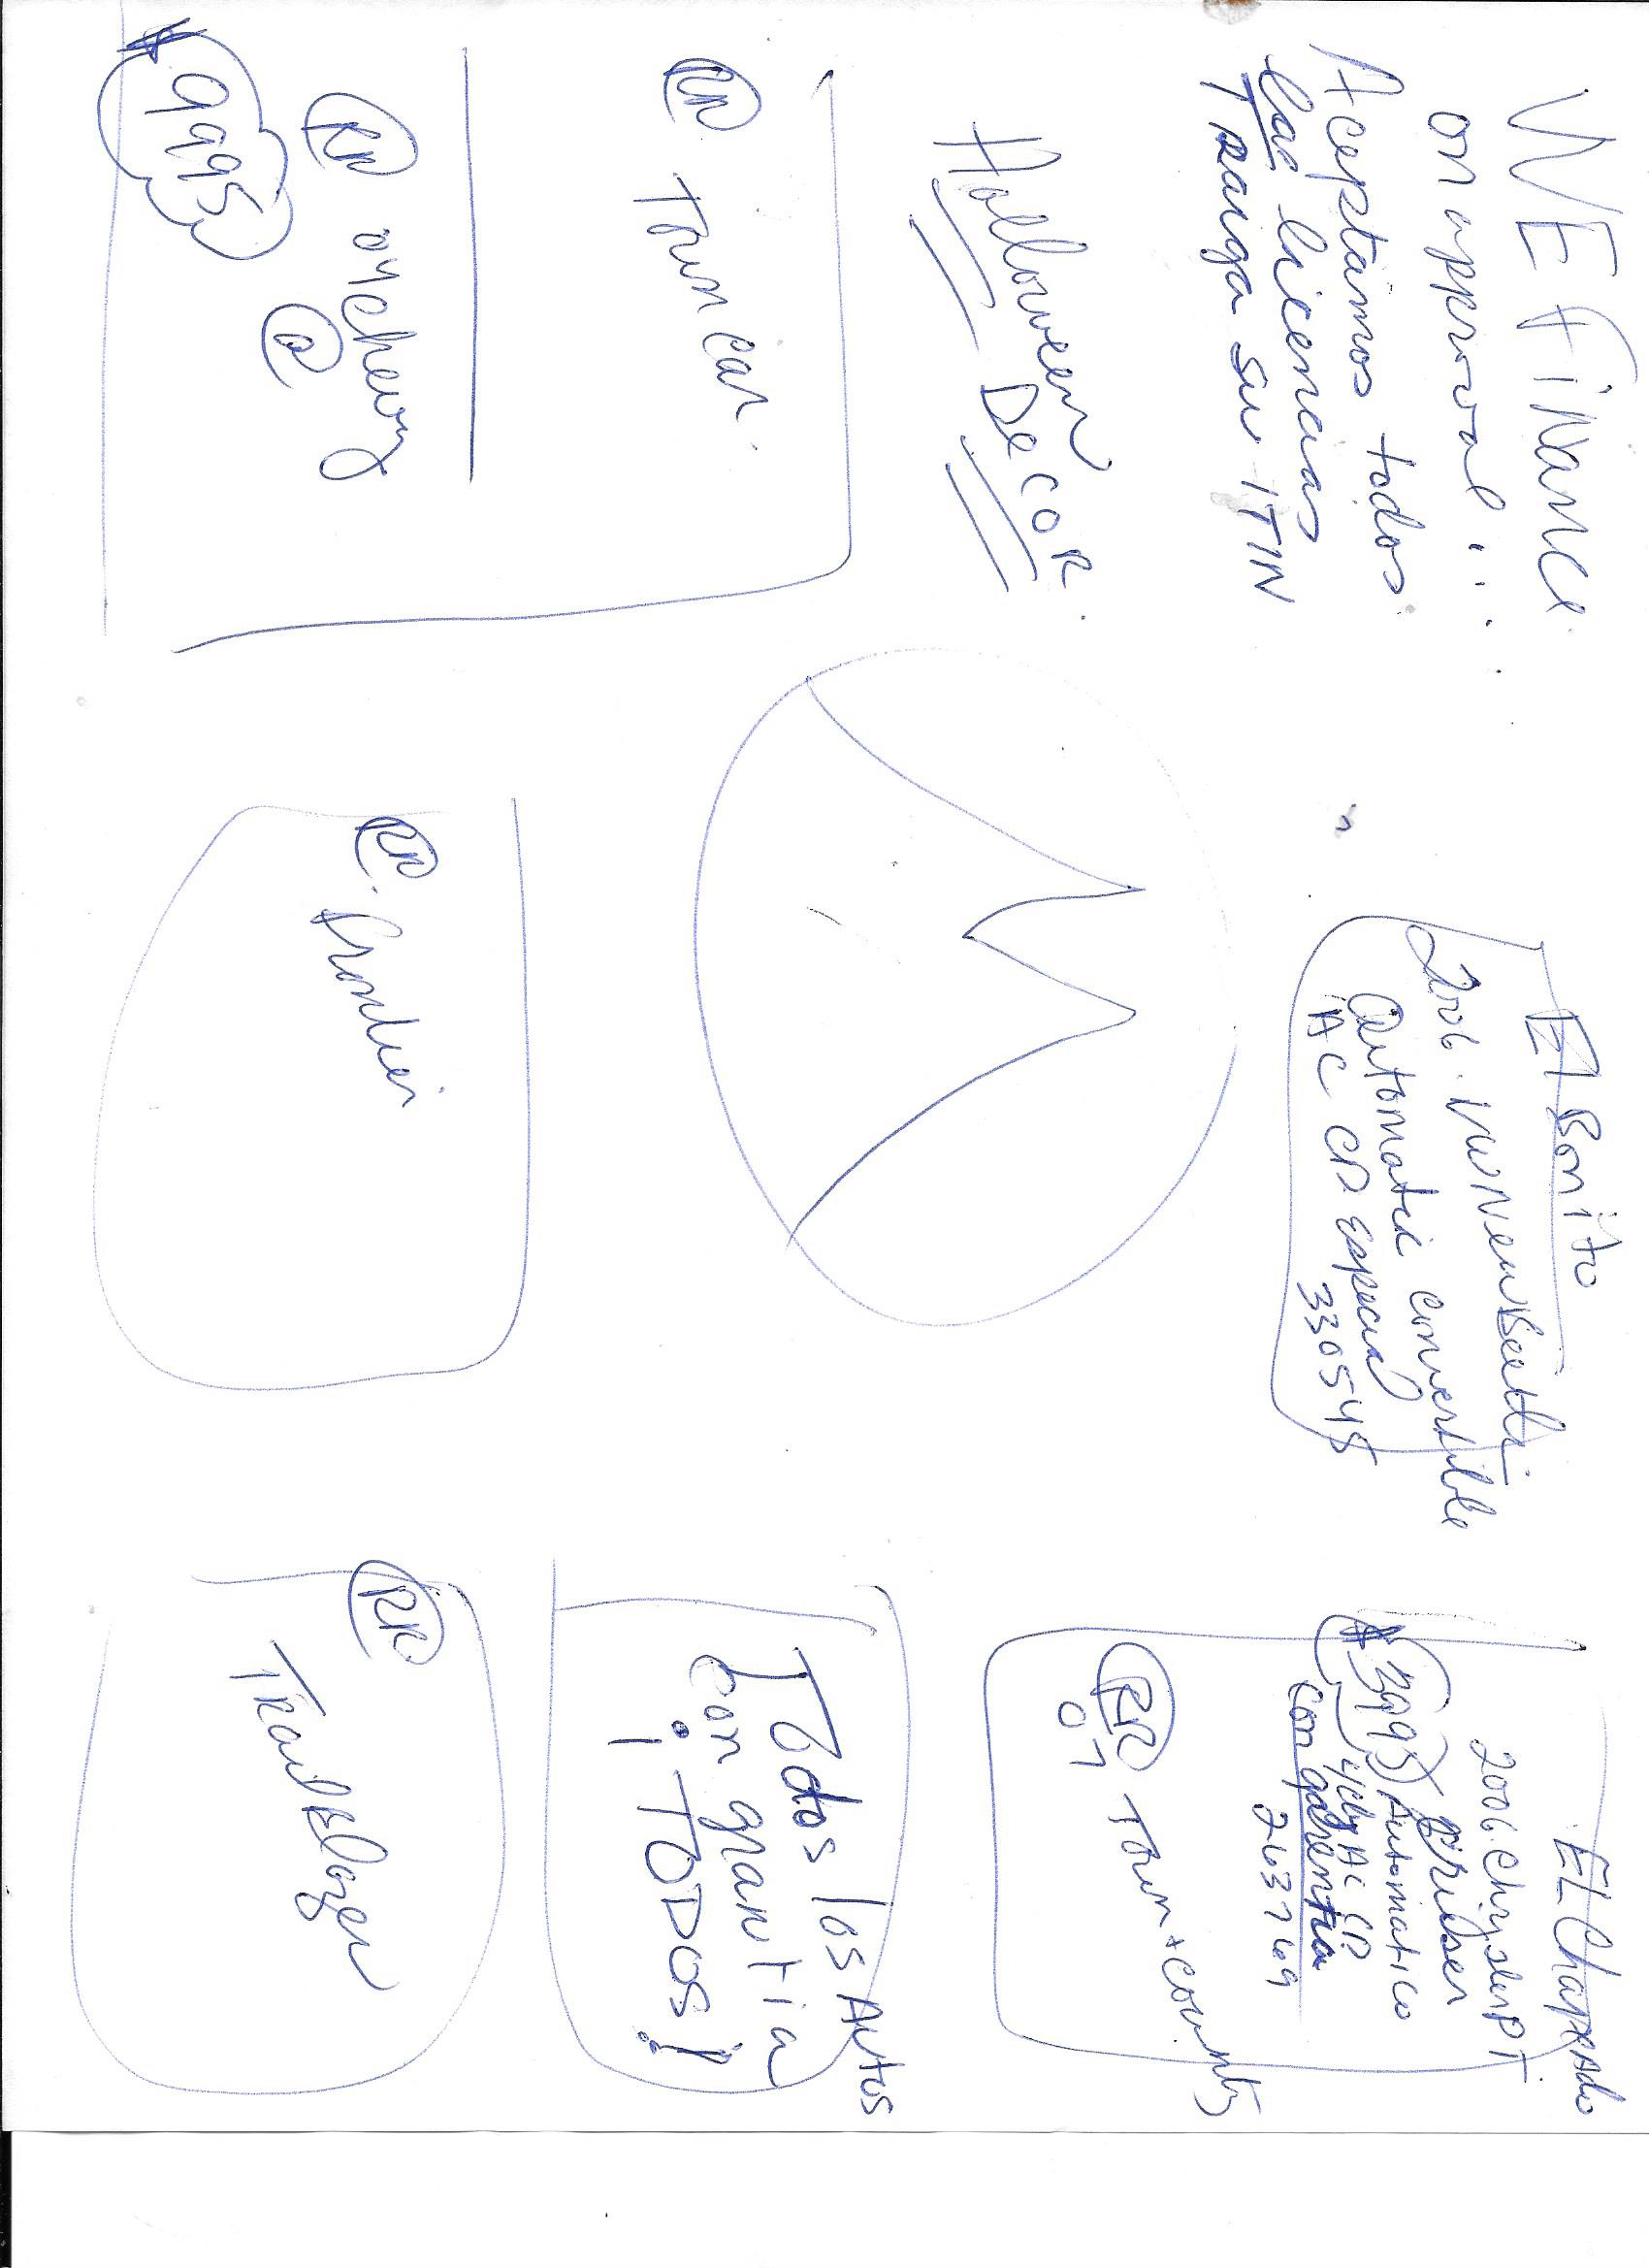 WE FiNance
on approval...
Aceptamos todos
las licencias
Traiga su ITIN
Halloween DeCOR
RR Town car.
RR 04 chevy
@
$9995
El Bonito
2006 VW New Beetle
Automatic convertible
AC CD especial
330545
RR. frontier
EL ChapaRAdo
2006 Chrysler PT
Cruiser
$3995 Automatico
4cly AC CD
Con garentia
263769
RR Town + county
01
Todos los Autos
con garantia
¡TODOS!
RR
TRailBlazer